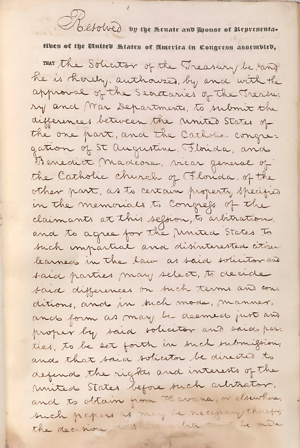 Resolved by the Senate and House of Representa-
tives of the United States of America in Congress assembled,
That the Solicitor of the Treasury be and
he is hereby, authorized, by and with the
approval of the Secretaries of the Treasu-
ry and War Departments, to submit the
differences between the United States of
the one part, and the Catholic congre-
gation of St Augustine Florida, and
Benedict Madeore, vicar general of
the Catholic church of Florida, of the
other part, as to certain property specified
in the memorials to Congress of the
claimants at this session, to arbitration
and to agree for the United States to
such impartial and disinterested citizen
learned in the law as said solicitor and
said parties may select, to decide
said differences on such terms and con-
ditions, and in such mode, manner,
and form as may be deemed just and
proper by said solicitor and said par-
ties, to be set forth in such submission,
and that said solicitor be directed to
defend the rights and interests of the
United States before such arbitrator,
and to obtain from Havana, or elsewhere,
such papers as may be necessary therefor,
the decision be made